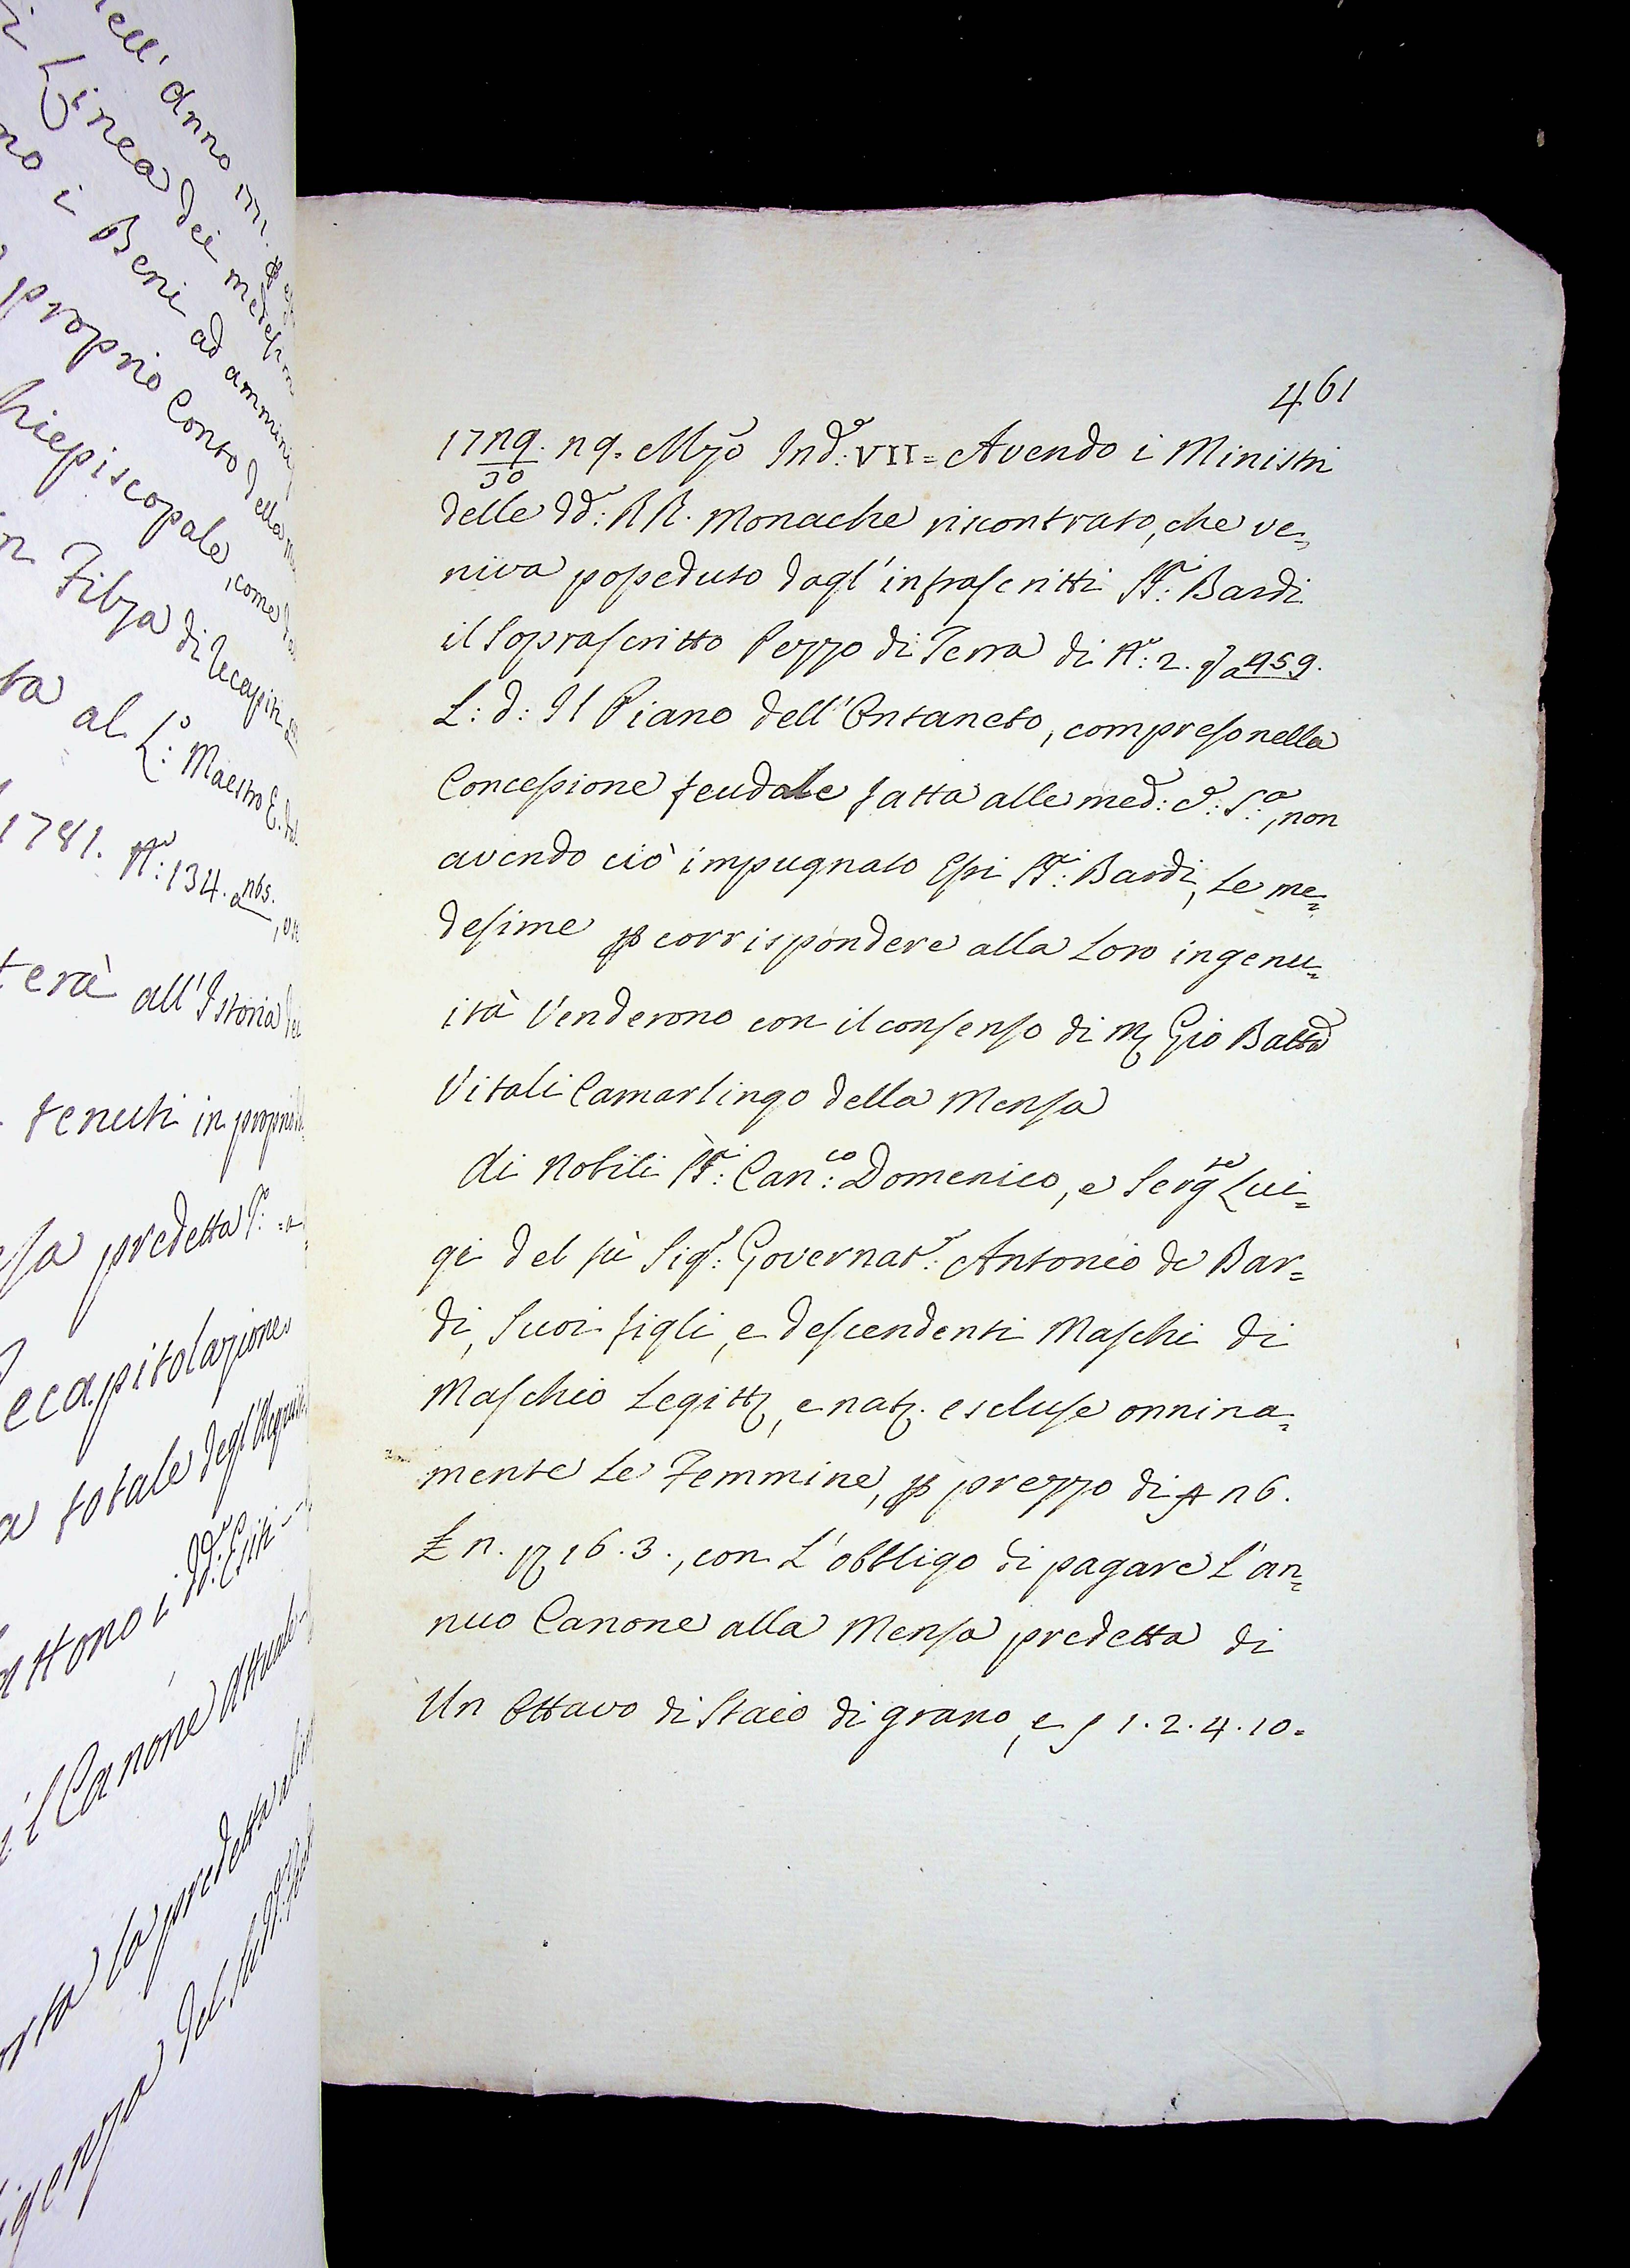 ell' anno 1771.
i Linea dei medesim
no i Beni ad ammini
proprio Conto della
hiepiscopale, come
n Filza di Recapiti
ta al L:º Maestro E.
1781. Nº: 134. a 265.
terà all'Istoria
tenuti in propri
sa predetta
ecapitolazione
a totale degl'
attono i dd:
il Canone Attuale
orta la predetta
igenza del
461
1729. 29. Mzo Ind: VII = Avendo i Ministri
30
delle dd: RR. Monache riscontrato, che ve=
niva posseduto dagl'infrascritti SS:ri Bardi
il Soprascritto Pezzo di Terra di Nº: 2. a 459.
L: d: Il Piano dell'Ontaneto, compreso nella
Concessione feudale fatta alle med: e: S:a, non
avendo ciò impugnato Essi SS:ri Bardi, Le me=
desime p corrispondere alla Loro ingenu=
ità Venderono con il consenso di M Gio Batta
Vitali Camarlingo della Mensa
Ai Nobili SS:ri Can:co Domenico, e Serg:te Lui=
gi del fù Sig:r Governat:r Antonio de Bar=
di, Suoi figli, e descendenti Maschi di
Maschio Legitt, e nat. escluse onnina=
mente Le Femmine, p prezzo di 26.
£ 2. 16. 3., con L'obbligo di pagare L'an=
nuo Canone alla Mensa predetta di
Un Ottavo di Staio di grano, e 1. 2. 4. 10=